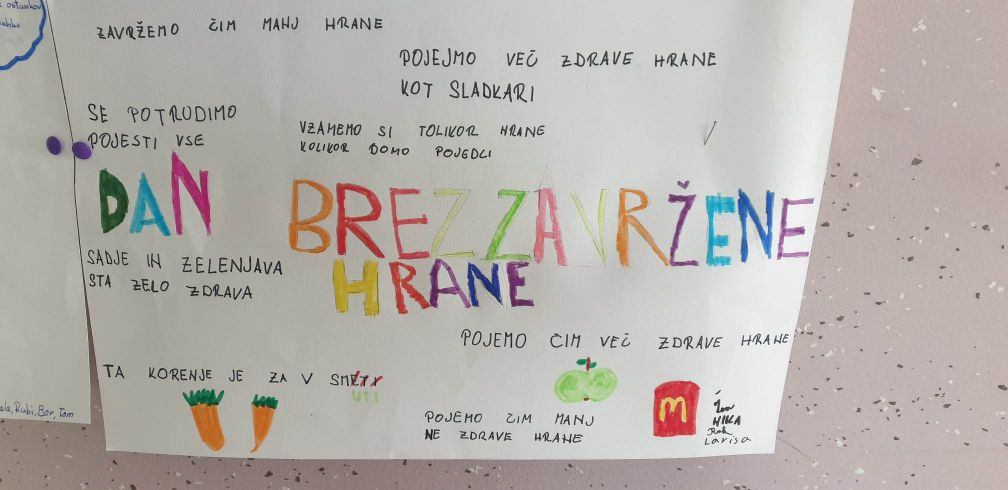 ostankov
ZAVRŽEMO ČIM MANJ HRANE
POJEJMO VEČ ZDRAVE HRANE
KOT SLADKARI
SE POTRUDIMO
POJESTI VSE
VZAMEMO SI TOLIKOR HRANE
KOLIKOR BOMO POJEDLI
DAN BREZ ZAVRŽENE
HRANE
SADJE IN ZELENJAVA
STA ZELO ZDRAVA
POJEMO ČIM VEČ ZDRAVE HRANE
TA KORENJE JE ZA V SMETI
UTI
POJEMO ČIM MANJ
NE ZDRAVE HRANE
M
NIKA
Larisa
Rubi, Bor, Tom